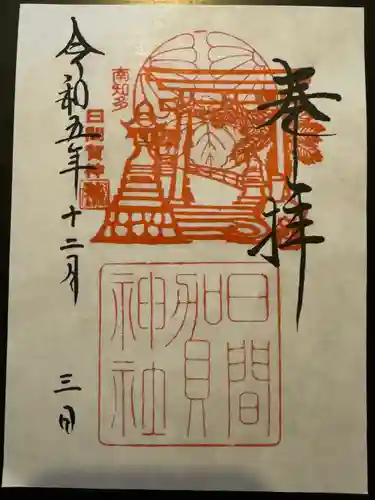 奉拝
南知多
日間賀神社
日間賀神社
令和五年十二月三日